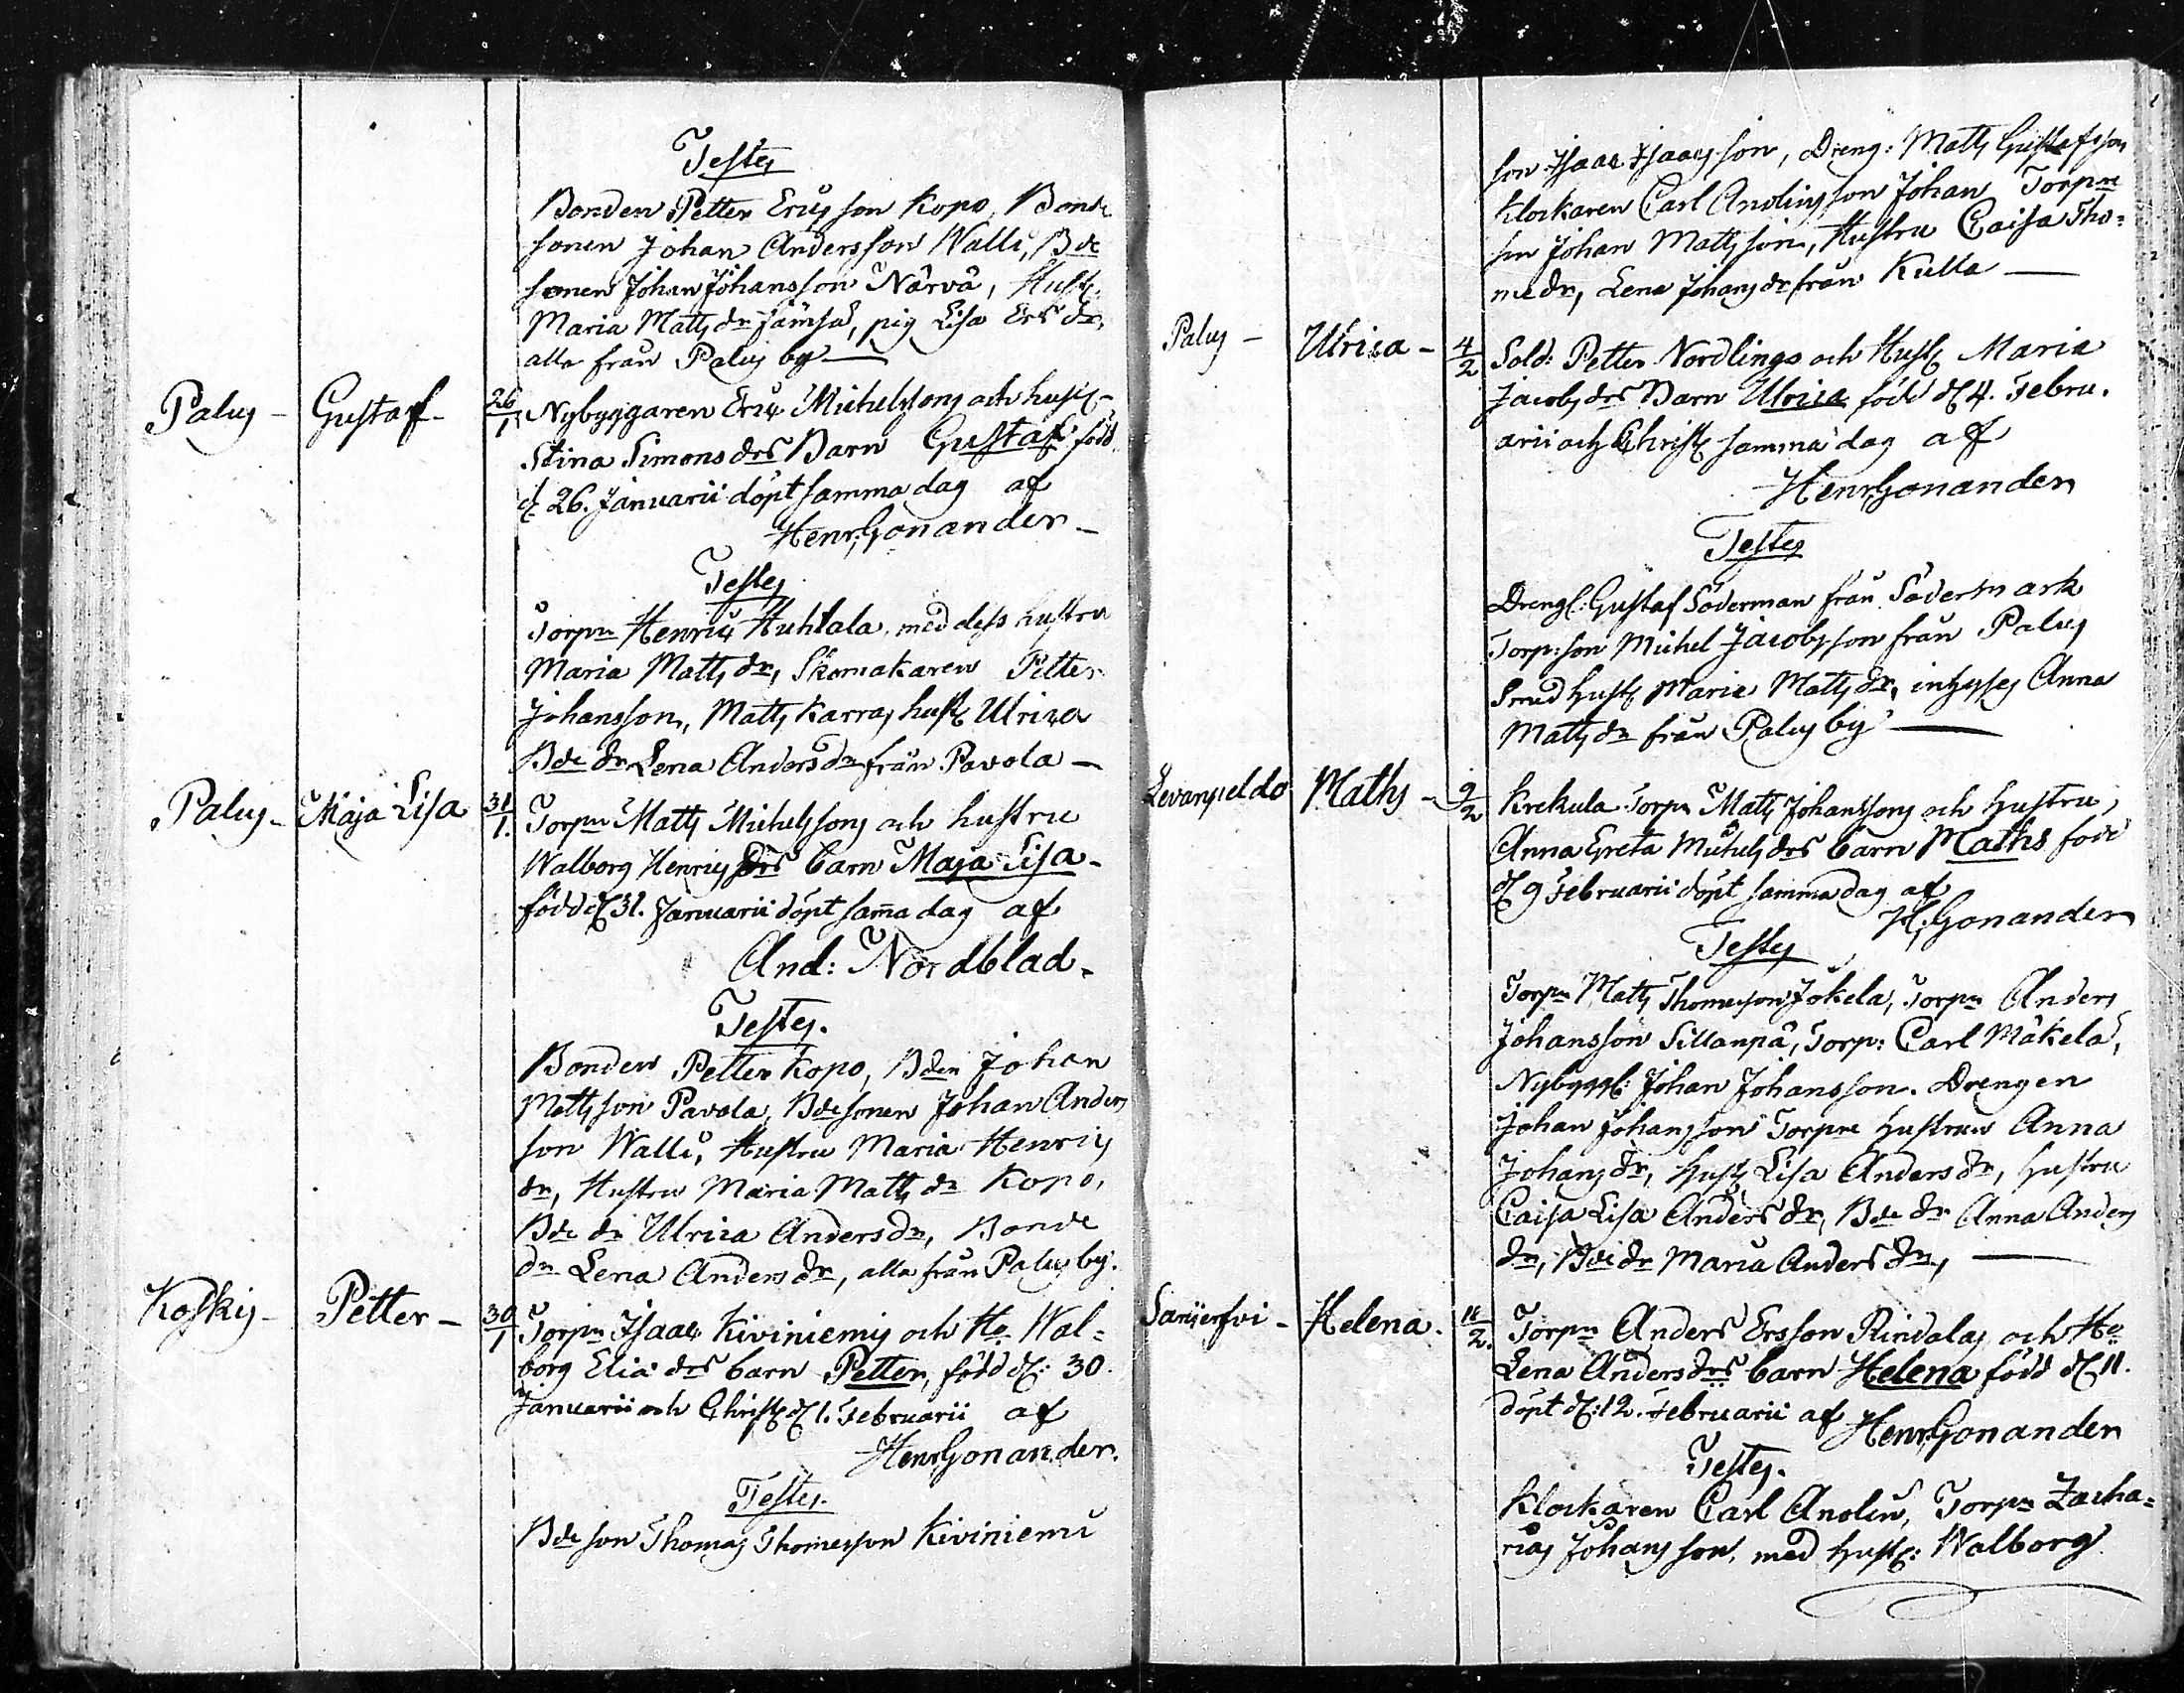 Testes
Bonden Petter Ericsson Kopo, Bonde
sonen Johan Andersson Walli, Bde
sonen Johan Johansson Närvä, Hust:
Maria Matts dr Jämsä, pig Lisa Ers dr,
alla från Palus by —
Palus – Gustaf – 26/1 Nybyggaren Eric Michelssons och hust:
Stina Simons drs Barn Gustaf född
d. 26. Januarii döpt samma dag af
Henr: Gonander –
Testes
Torpn Henric Huhtala, med dess hustru
Maria Matts dr, Skomakaren Petter
Johansson, Matts Karras hust: Ulrica
Bde dr Lena Anders dr från Pavola —
Palus – Maja Lisa 31/1. Torpn Matts Michelssons och hustru
Walborg Henrics drs barn Maja Lisa –
född d: 31. Januarii döpt sama dag af
And: Nordblad.
Testes.
Bonden Petter Kopo, Bden Johan
Mattsson Pavola, Bde sonen Johan Anders
son Walli, Hustru Maria Henrics
dr, Hustru Maria Matts dr Kopo,
Bde dr Ulrica Anders dr, Bonde
dr Lena Anders dr, alla från Palus by.
Koskis – Petter – 30/1 Torpn Isaac Kiviniemis och Ho Wal=
borg Elia drs barn Petter, född d: 30.
Januarii och Christ: d: 1. Februarii af
Henr: Gonander.
Testes.
Bde son Thomas Thomasson Kiviniemi
son Isaac Isaacsson, Dreng: Matts Gustafsson
Klockaren Carl Anolins son Johan Torpre
son Johan Mattsson, Hustru Caisa Tho=
mæ dr, Lena Johans dr från Kulla —
Palus – Ulrica – 4/2 Sold: Petter Nordlings och Hust: Maria
Jacobs drs Barn Ulrica född d: 4. Febru.
arii och Christ: samma dag af
Henr: Gonander
Testes
Drengs: Gustaf Söderman från Södermark
Torp: son Michel Jacobsson från Palus
Smed hust: Maria Matts dr, inhyses Anna
Matts dr från Palus by —
Levanpeldo Maths – 9/2 Krekula Torpn Matts Johanssons och hustru,
Anna Greta Michels drs barn Maths född
d: 9 Februarii döpt samma dag af
H: Gonander
Testes
Torpn Matts Thomasson Jokela, Torpn Anders
Johansson Sillanpä, Torp: Carl Mäkelä,
Nybyggs: Johan Johansson. Drengen
Johan Johansson Torpre hustrun Anna
Johans dr, hust: Lisa Anders dr, hustru
Caisa Lisa Anders dr, Bde dr Anna Anders
dr, Bde dr Maria Anders dr, —
– Helena. 11/2. Torpn Anders Ersson Rindalas och Ho
Lena Anders drs barn Helena född d: 11.
döpt d: 12. Februarii af Henr: Gonander
Testes.
Klockaren Carl Anolin, Torpn Zacha=
rias Johansson, med hust: Walborg